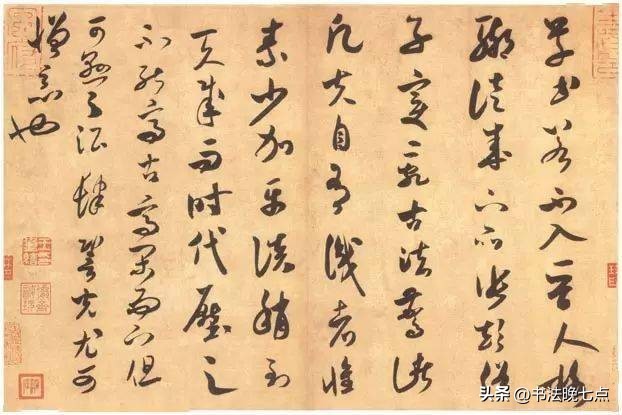 草書若不入晉人格
輒徒成下品張顛俗
子變亂古法驚諸
凡夫自有識者懷
素少加平淡稍到
天成而時代壓之
不能高古高閑而下但
可懸之酒肆䛒光尤可
憎惡也
头条 @书法晚七点